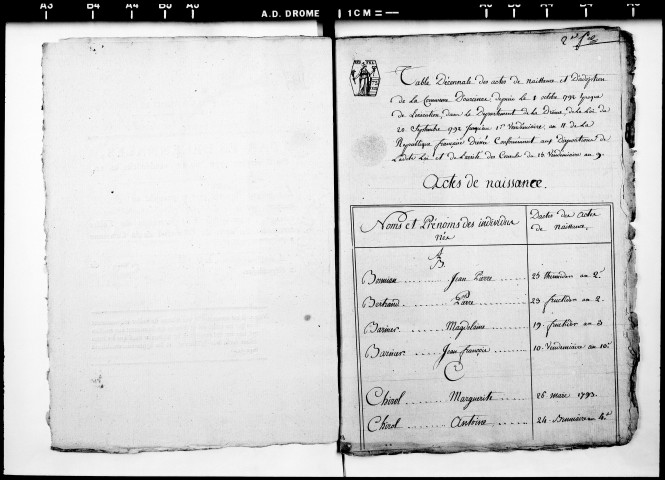 A3 B4 A4 B5 A5 A.D. DROME 1CM A5 B5 A4 B4 A3
Table Décennale des actes de naissance et D'adoption
de la Commune D'ourance, depuis le 1 octobre 1792 époque
de l'execution, dans le Département de la Drôme, de la Loi du
20 Septembre 1792 jusqu'au 1er Vendemiaire, an 11 de la
République française Dressée Conformément aux dispositions de
Ladite Loi et de L'arrêté des Consuls du 25 Vendemiaire an 9.
Actes de naissance.
Noms et Prénoms des individus
nés
Dactes des Actes
de naissance.
A
B.
Jean Pierre 25 thermidor an 2e
Bertrand Pierre 23 fructidor an 2.
Barnier Magdelaine 19. fructidor an 3
Barnier Jean françois 10. Vendemiaire an 10e
C
Chirol Marguerite 26 mars 1793.
Chirol Antoine 24. Brumaire an 4e